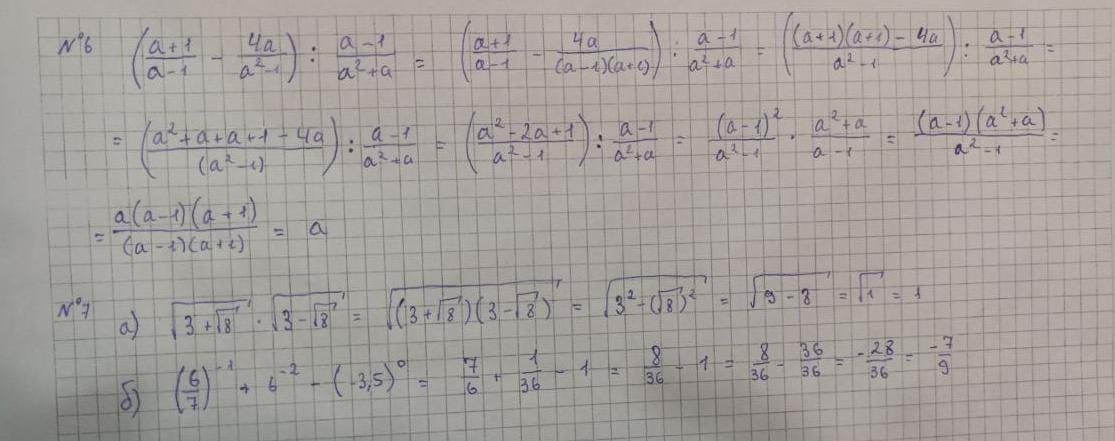 №6 (a+1/a-1 - 4a/a²-1) : a-1/a²+a = (a+1/a-1 - 4a/(a-1)(a+1)) : a-1/a²+a = ((a+1)(a+1) - 4a/a²-1) : a-1/a²+a =
= (a²+a+a+1-4a/(a²-1)) : a-1/a²+a = (a²-2a+1/a²-1) : a-1/a²+a = (a-1)²/a²-1 · a²+a/a-1 = (a-1)(a²+a)/a²-1 =
= a(a-1)(a+1)/(a-1)(a+1) = a
№7 а) √(3+√8) · √(3-√8) = √((3+√8)(3-√8)) = √(3²-(√8)²) = √(9-8) = √1 = 1
б) (6/7)⁻¹ + 6⁻² - (-3,5)⁰ = 7/6 + 1/36 - 1 = 8/36 - 1 = 8/36 - 36/36 = -28/36 = -7/9